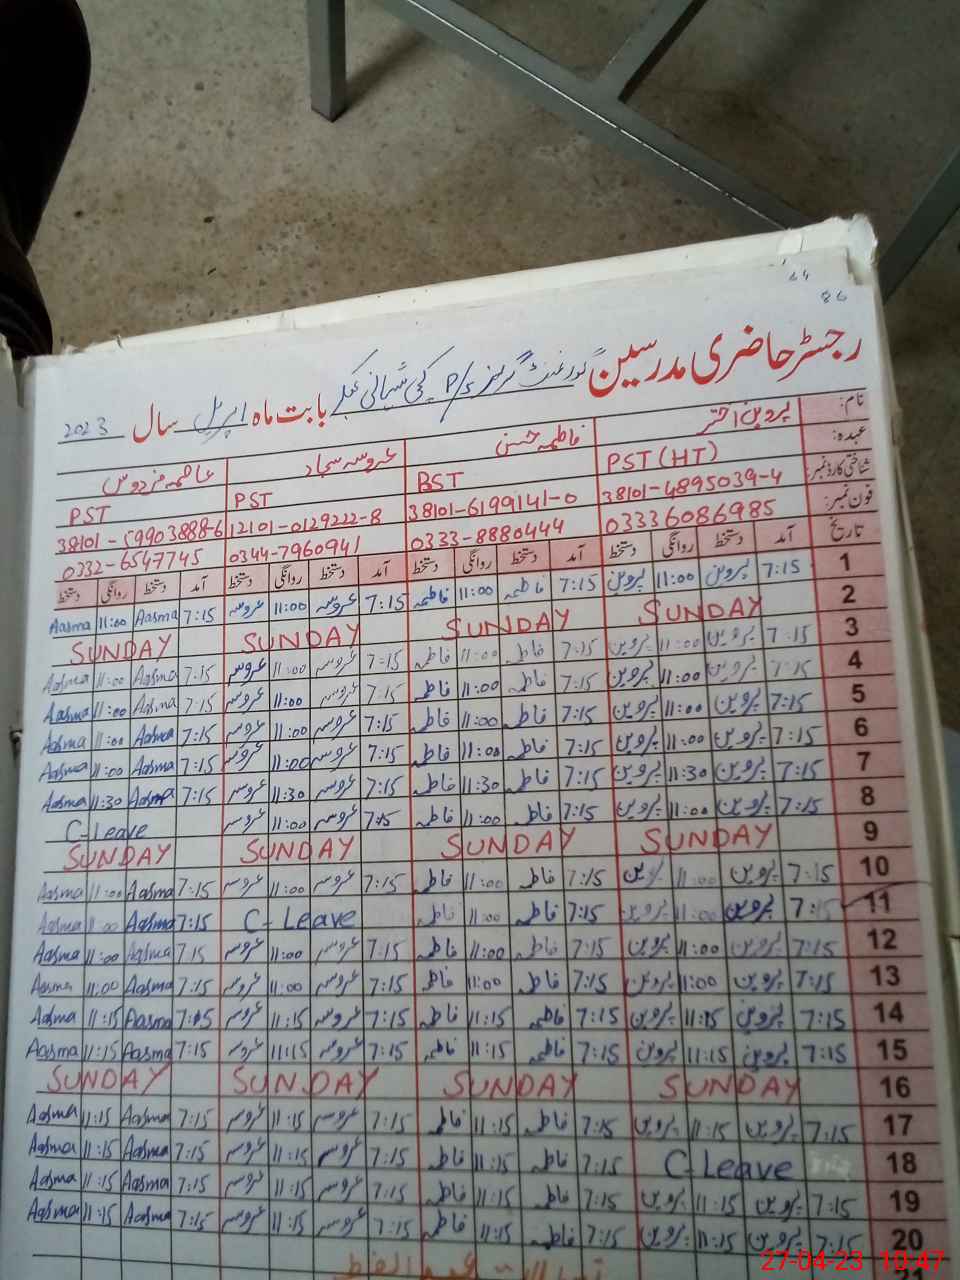 86
رجسٹر حاضری مدرسین گورنمنٹ گرلز P/S کچی شیانی بابت ماہ اپریل سال 2023
نام: پروین اختر فاطمہ حسن عروسہ سجاد عاصمہ فردوس
عہدہ: PST (HT) BST PST PST
شناختی کارڈ نمبر: 38101-4895039-4 38101-6199141-0 12101-0129222-8 38101-59903888-6
فون نمبر: 03336086985 0333-8880444 0344-7960941 0332-6547745
تاریخ آمد دستخط روانگی دستخط آمد دستخط روانگی دستخط آمد دستخط روانگی دستخط آمد دستخط روانگی دستخط
1 7:15 پروین 11:00 پروین 7:15 فاطمہ 11:00 فاطمہ 7:15 عروسہ 11:00 عروسہ 7:15 Aasma 11:00 Aasma
2 SUNDAY SUNDAY SUNDAY SUNDAY
3 7:15 پروین 11:00 پروین 7:15 فاطمہ 11:00 فاطمہ 7:15 عروسہ 11:00 عروسہ 7:15 Aasma 11:00 Aasma
4 7:15 پروین 11:00 پروین 7:15 فاطمہ 11:00 فاطمہ 7:15 عروسہ 11:00 عروسہ 7:15 Aasma 11:00 Aasma
5 7:15 پروین 11:00 پروین 7:15 فاطمہ 11:00 فاطمہ 7:15 عروسہ 11:00 عروسہ 7:15 Aasma 11:00 Aasma
6 7:15 پروین 11:00 پروین 7:15 فاطمہ 11:00 فاطمہ 7:15 عروسہ 11:00 عروسہ 7:15 Aasma 11:00 Aasma
7 7:15 پروین 11:30 پروین 7:15 فاطمہ 11:30 فاطمہ 7:15 عروسہ 11:30 عروسہ 7:15 Aasma 11:30 Aasma
8 7:15 پروین 11:00 پروین 7:15 فاطمہ 11:00 فاطمہ 7:15 عروسہ 11:00 عروسہ C-Leave
9 SUNDAY SUNDAY SUNDAY SUNDAY
10 7:15 پروین 11:00 پروین 7:15 فاطمہ 11:00 فاطمہ 7:15 عروسہ 11:00 عروسہ 7:15 Aasma 11:00 Aasma
11 7:15 پروین 11:00 پروین 7:15 فاطمہ 11:00 فاطمہ C-Leave 7:15 Aasma 11:00 Aasma
12 7:15 پروین 11:00 پروین 7:15 فاطمہ 11:00 فاطمہ 7:15 عروسہ 11:00 عروسہ 7:15 Aasma 11:00 Aasma
13 7:15 پروین 11:00 پروین 7:15 فاطمہ 11:00 فاطمہ 7:15 عروسہ 11:00 عروسہ 7:15 Aasma 11:00 Aasma
14 7:15 پروین 11:15 پروین 7:15 فاطمہ 11:15 فاطمہ 7:15 عروسہ 11:15 عروسہ 7:15 Aasma 11:15 Aasma
15 7:15 پروین 11:15 پروین 7:15 فاطمہ 11:15 فاطمہ 7:15 عروسہ 11:15 عروسہ 7:15 Aasma 11:15 Aasma
16 SUNDAY SUNDAY SUNDAY SUNDAY
17 7:15 پروین 11:15 پروین 7:15 فاطمہ 11:15 فاطمہ 7:15 عروسہ 11:15 عروسہ 7:15 Aasma 11:15 Aasma
18 C-Leave 7:15 فاطمہ 11:15 فاطمہ 7:15 عروسہ 11:15 عروسہ 7:15 Aasma 11:15 Aasma
19 7:15 پروین 11:15 پروین 7:15 فاطمہ 11:15 فاطمہ 7:15 عروسہ 11:15 عروسہ 7:15 Aasma 11:15 Aasma
20 7:15 پروین 11:15 پروین 7:15 فاطمہ 11:15 فاطمہ 7:15 عروسہ 11:15 عروسہ 7:15 Aasma 11:15 Aasma
عید الفطر
27-04-23 10:47